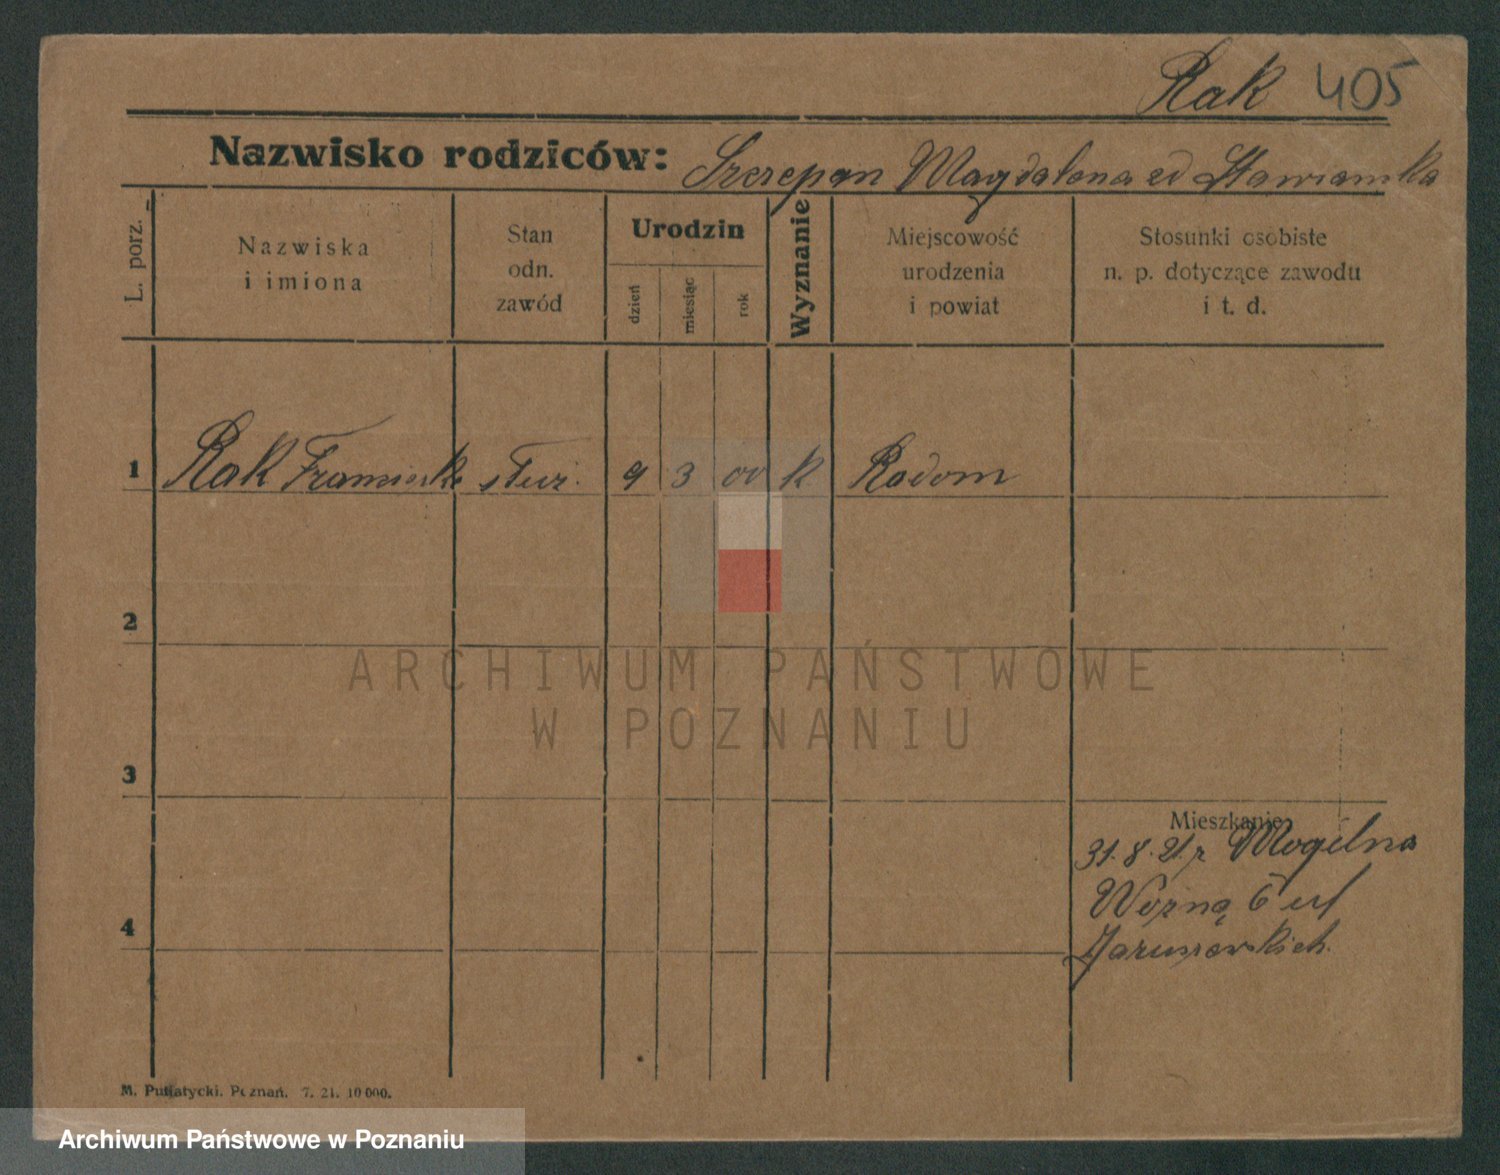 Rak 405
Nazwisko rodziców: Szczepan Magdalena zd Stawianka
L. porz.
Nazwiska
i imiona
Stan
odn.
zawód
Urodzin
dzień
miesiąc
rok
Wyznanie
Miejscowość
urodzenia
i powiat
Stosunki osobiste
n. p. dotyczące zawodu
i t. d.
1 Rak Franciszk służ. 9 3 00 k Radom
2
ARCHIWUM PAŃSTWOWE
W POZNANIU
3
Mieszkanie
31.8.21. z Mogilna
4
Woźna 6 u
M. Putiatycki. Poznań. 7. 21. 10 000.
Archiwum Państwowe w Poznaniu